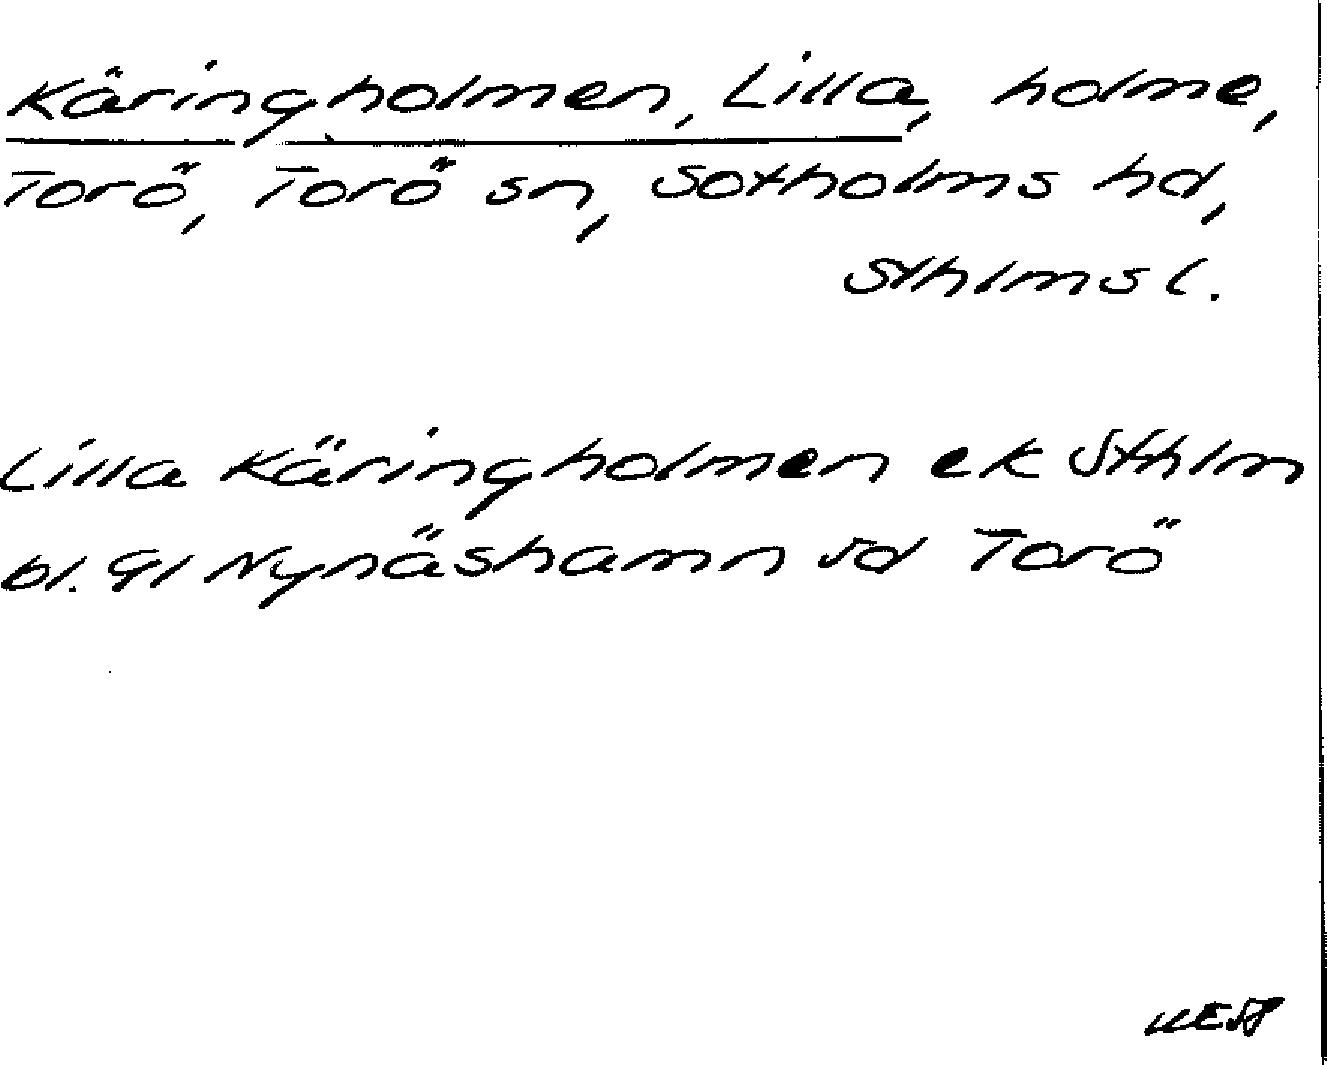 Käringholmen, Lilla, holme,
Torö, Torö sn, Sotholms hd,
Sthlms l.
Lilla Käringholmen ek Sthlm
bl. 91 Nynäshamn sd Torö